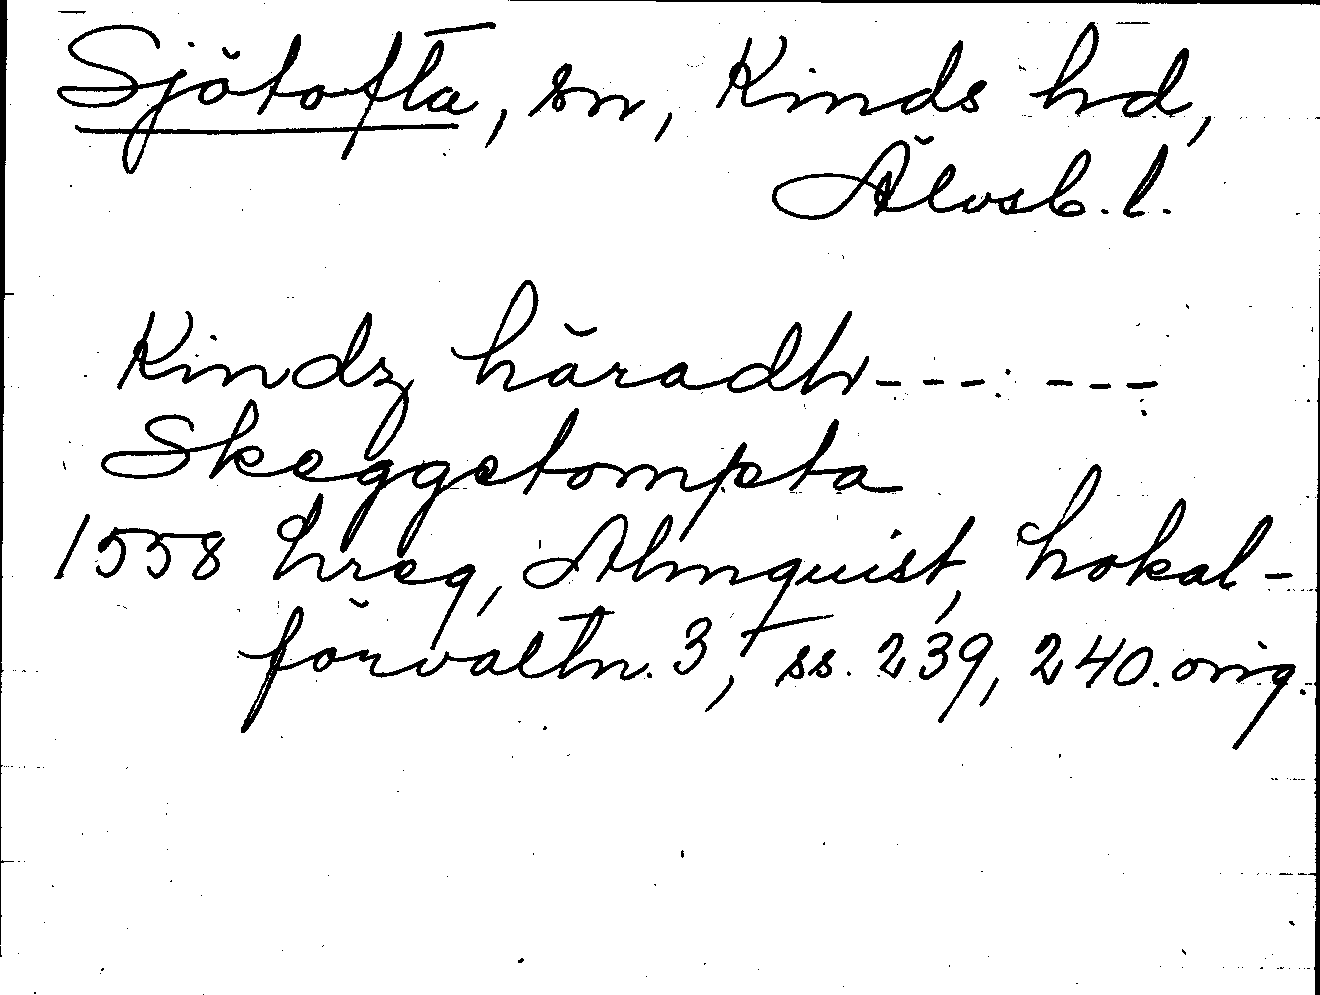 Sjötofta, sn, Kinds hd,
Älvsb. l.
Kindz häradh--- ---
Skeggetompta
1558 hreg, Almquist, Lokal-
förvaltn. 3, ss. 239, 240. orig.